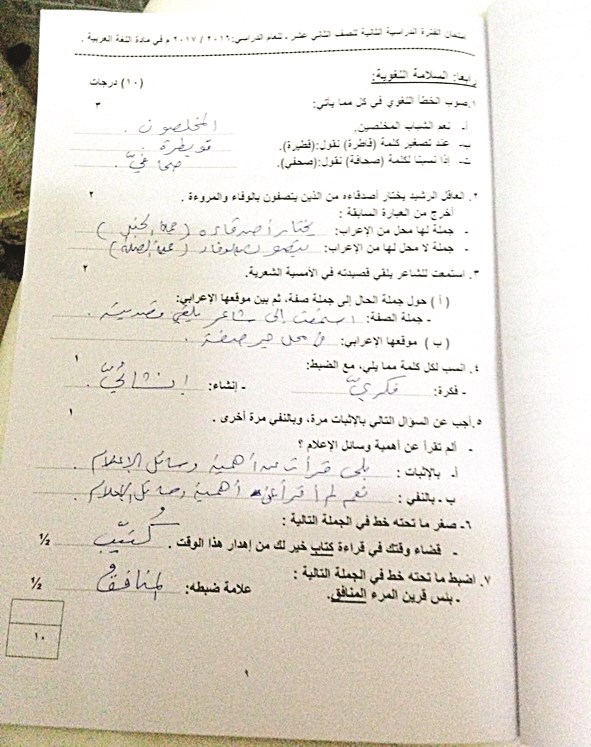 امتحان الفترة الدراسية الثانية للصف الثاني عشر - للعام الدراسي: ٢٠١٦ / ٢٠١٧ م في مادة اللغة العربية .
رابعا: السلامة اللغوية: (١٠) درجات
١.صوب الخطأ اللغوي في كل مما يأتي: ٣
أ- نعم الشباب المخلصين. المخلصون .
ب- عند تصغير كلمة (قاطرة) نقول:(قضيرة). قويطرة .
ت- إذا نسبنا لكلمة (صحافة) نقول:(صحفي). صحافيّ .
٢. العاقل الرشيد يختار أصدقاءه من الذين يتصفون بالوفاء والمروءة . ٢
أخرج من العبارة السابقة :
- جملة لها محل من الإعراب: يختار أصدقاءه (جملة الخبر)
- جملة لا محل لها من الإعراب: يتصفون بالوفاء (جملة الصلة)
٣. استمعت للشاعر يلقي قصيدته في الأمسية الشعرية. ٢
( أ ) حول جملة الحال إلى جملة صفة، ثم بين موقعها الإعرابي:
- جملة الصفة: استمعت إلى شاعر يلقي قصيدته .
( ب ) موقعها الإعرابي: في محل جر صفة .
٤. انسب لكل كلمة مما يلي، مع الضبط: ١
- فكرة: فكريّ - إنشاء: إنشائيّ .
٥.أجب عن السؤال التالي بالإثبات مرة، وبالنفي مرة أخرى . ١
- ألم تقرأ عن أهمية وسائل الإعلام ؟
أ- بالإثبات : بلى قرأت عن أهمية وسائل الإعلام .
ب - بالنفي : نعم لم أقرأ عن أهمية وسائل الإعلام .
٦- صغر ما تحته خط في الجملة التالية :
- قضاء وقتك في قراءة كتاب خير لك من إهدار هذا الوقت . كُتيّب ½
٧. اضبط ما تحته خط في الجملة التالية :
- بئس قرين المرء المنافق. علامة ضبطه: المنافقُ ½
١٠
٩